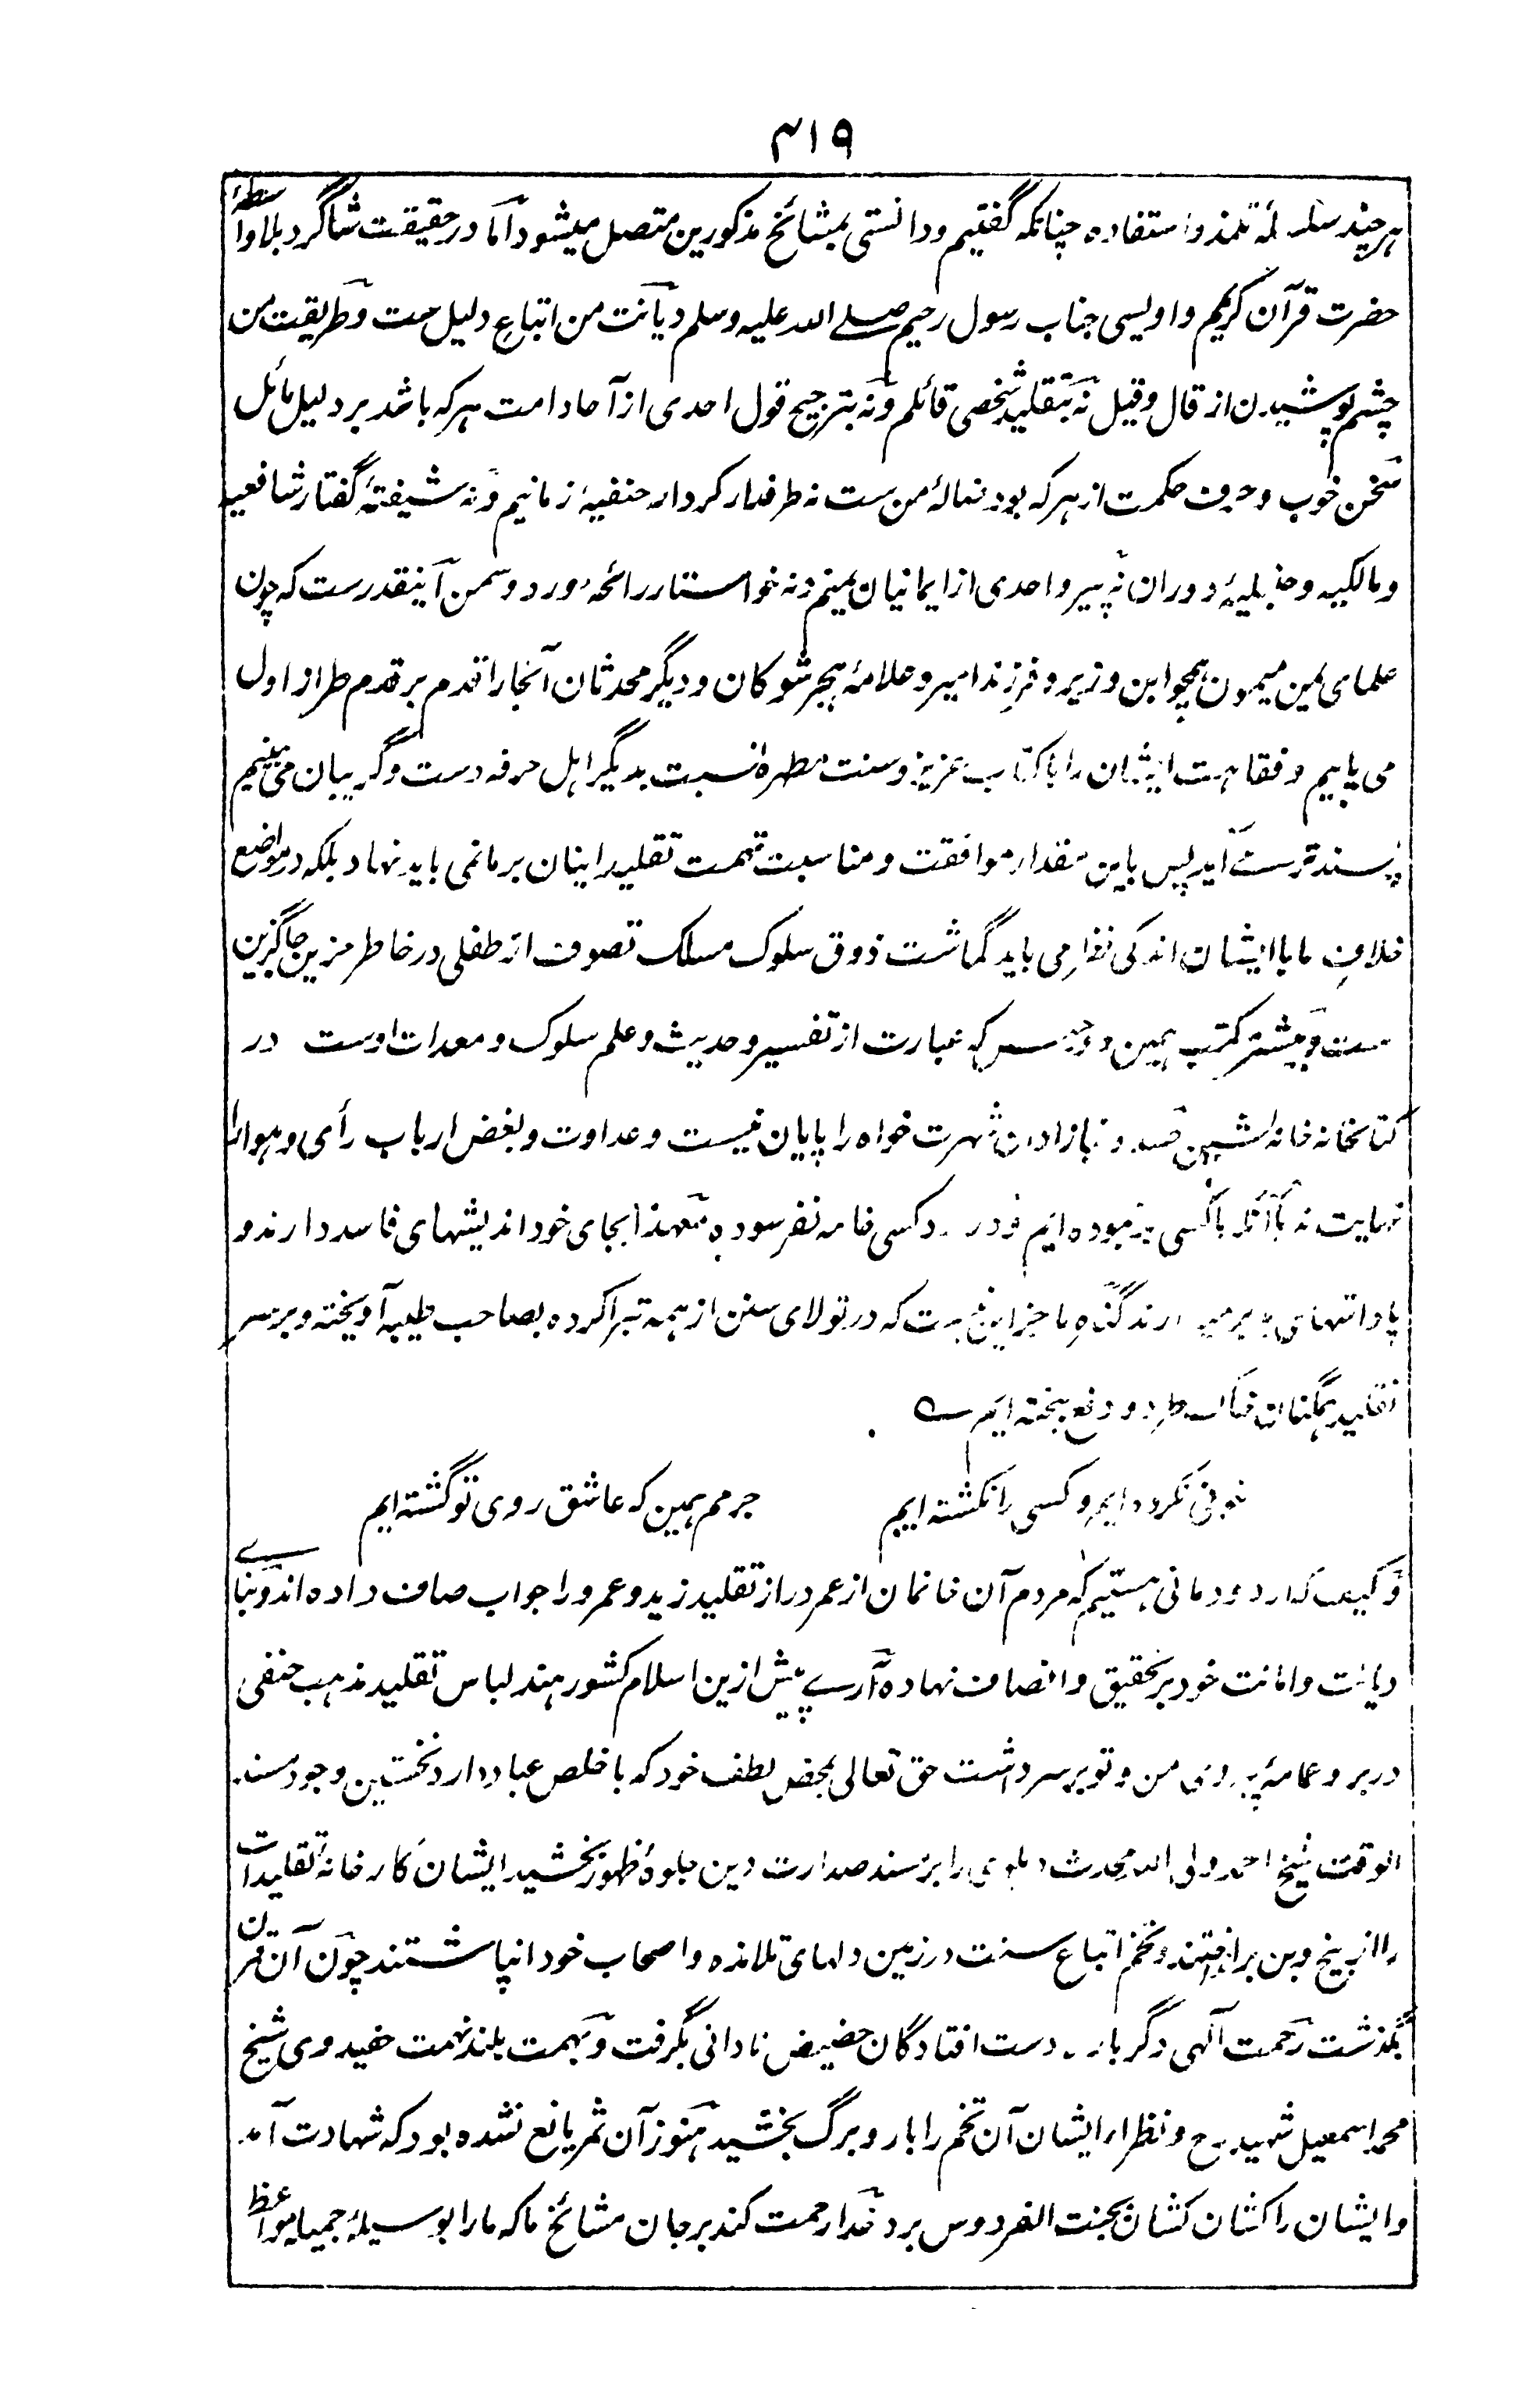 ۴۱۹
هر چند سلسلهٔ تلمذ و استفاده چنانکه گفتیم و دانستی بمشائخ مذکورین متصل میشود اما در حقیقت شاگرد بلاواسطهٔ
حضرت قرآن کریم و اویسی جناب رسول رحیم صلے الله علیه وسلم دیانت من اتباع دلیل ست و طریقت من
چشم پوشیدن از قال و قیل نه بتقلید شخصی قائلم و نه بترجیح قول احدی از آحاد امت هر که باشد بر دلیل مائل
سخن خوب و حرف حکمت از هر که بود ضالهٔ من ست نه طرفدار کردار حنفیهٔ زمانیم و نه شیفتهٔ گفتار شافعیه
و مالکیه و حنبلیهٔ دوران نه پیرو احدی از ایمانیان یمنیم و نه خواستار رائحهٔ ورد و سمن آینقدر ست که چون
علمای یمن میمون همچو ابن وزیر و فرزند امیر و علامهٔ هجر شوکان و دیگر محدثان آنجا را قدم بر قدم طراز اول
می یابیم و فقاهت ایشان را با کتاب عزیز و سنت مطهره نسبت بدیگر اهل حرفه دست و گریبان می بینیم
پسند فرست آید پس باین مقدار موافقت و مناسبت تهمت تقلید اینان بر ما نمی باید نهاد بلکه در مواضع
خلاف ما با ایشان اندکی نظر می باید گماشت ذوق سلوک مسلک تصوف از طفلی در خاطر حزین جاگزین
ست و بیشتر کتب همین که عبارت از تفسیر و حدیث و علم سلوک و معدات اوست در
کتابخانه خانه را پایان نیست و عداوت و بغض ارباب رأی و هوا را
نهایت نه با آنکه با کسی بد نبوده ایم و در رد کسی خامه نفرسوده معهذا بجای خود اندیشهای فاسد دارند و
گناه ما جز این نیست که در تولای سنن از همه تبرا کرده بصاحب طیبه آویخته و بر سر
تقلید همگنان خاک طرد و دفع بیخته ایم ے
خونی نکرده ایم و کسی را نکشته ایم جرمم همین که عاشق روی تو گشته ایم
و کیف که از دودمانی هستیم که مردم آن خانمان از عمر دراز تقلید زید و عمرو را جواب صاف داده اند و بنای
دیانت و امانت خود بر تحقیق و انصاف نهاده آرے پیش ازین اسلام کشور هند لباس تقلید مذهب حنفی
در بر و عمامهٔ پیروی من و تو بر سر داشت حق تعالی بمحض لطف خود که با خلص عباد دارد نخستین وجود مسند
الوقت شیخ احمد ولی الله محدث دهلوی را بر سند صدارت دین جلوهٔ ظهور بخشید ایشان کارخانهٔ تقلیدات
را از بیخ و بن برانداختند و تخم اتباع سنت در زمین دلهای تلامذه و اصحاب خود انپاشتند چون آن قرن
بگذشت رحمت الٰهی دگر بار دست افتادگان حضیض نادانی بگرفت و بهمت بلند نهمت حفید وی شیخ
محمد اسمعیل شهید رح و نظراء ایشان آن تخم را بار و برگ بخشید هنوز آن ثمر یانع نشده بود که شهادت آمد
و ایشان را کشان کشان بجنت الفردوس برد خدا رحمت کند بر جان مشائخ ما که ما را بوسیلهٔ جمیلهٔ مواعظ